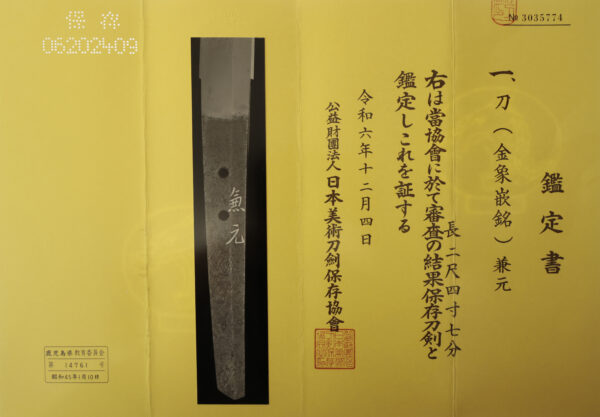 № 3035774
鑑定書
一、刀(金象嵌銘)兼元
長二尺四寸七分
右は當協會に於て審査の結果保存刀剣と
鑑定しこれを証する
令和六年十二月四日
公益財團法人日本美術刀劍保存協會
兼元
保存
06202409
鹿児島県教育委員会
第 14761 号
昭和45年1月10日